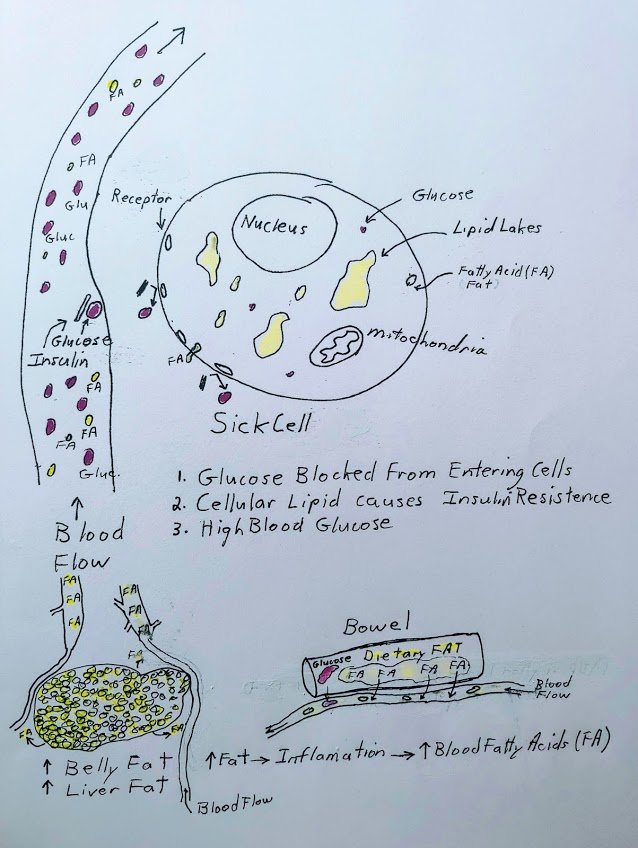 FA
FA
Glu
Gluc
Glucose
Insulin
FA
FA
FA
Gluc
Blood
Flow
Receptor
Nucleus
Glucose
Lipid Lakes
Fatty Acid (FA)
Fat
mitochondria
FA
Sick Cell
1. Glucose Blocked From Entering Cells
2. Cellular Lipid causes Insulin Resistence
3. High Blood Glucose
FA
FA
FA
FA
FA
FA
FA
FA
FA
↑ Belly Fat
↑ Liver Fat
Blood Flow
Bowel
Glucose Dietary FAT
FA FA FA FA
Blood
Flow
↑ Fat → Inflamation → ↑ Blood Fatty Acids (FA)